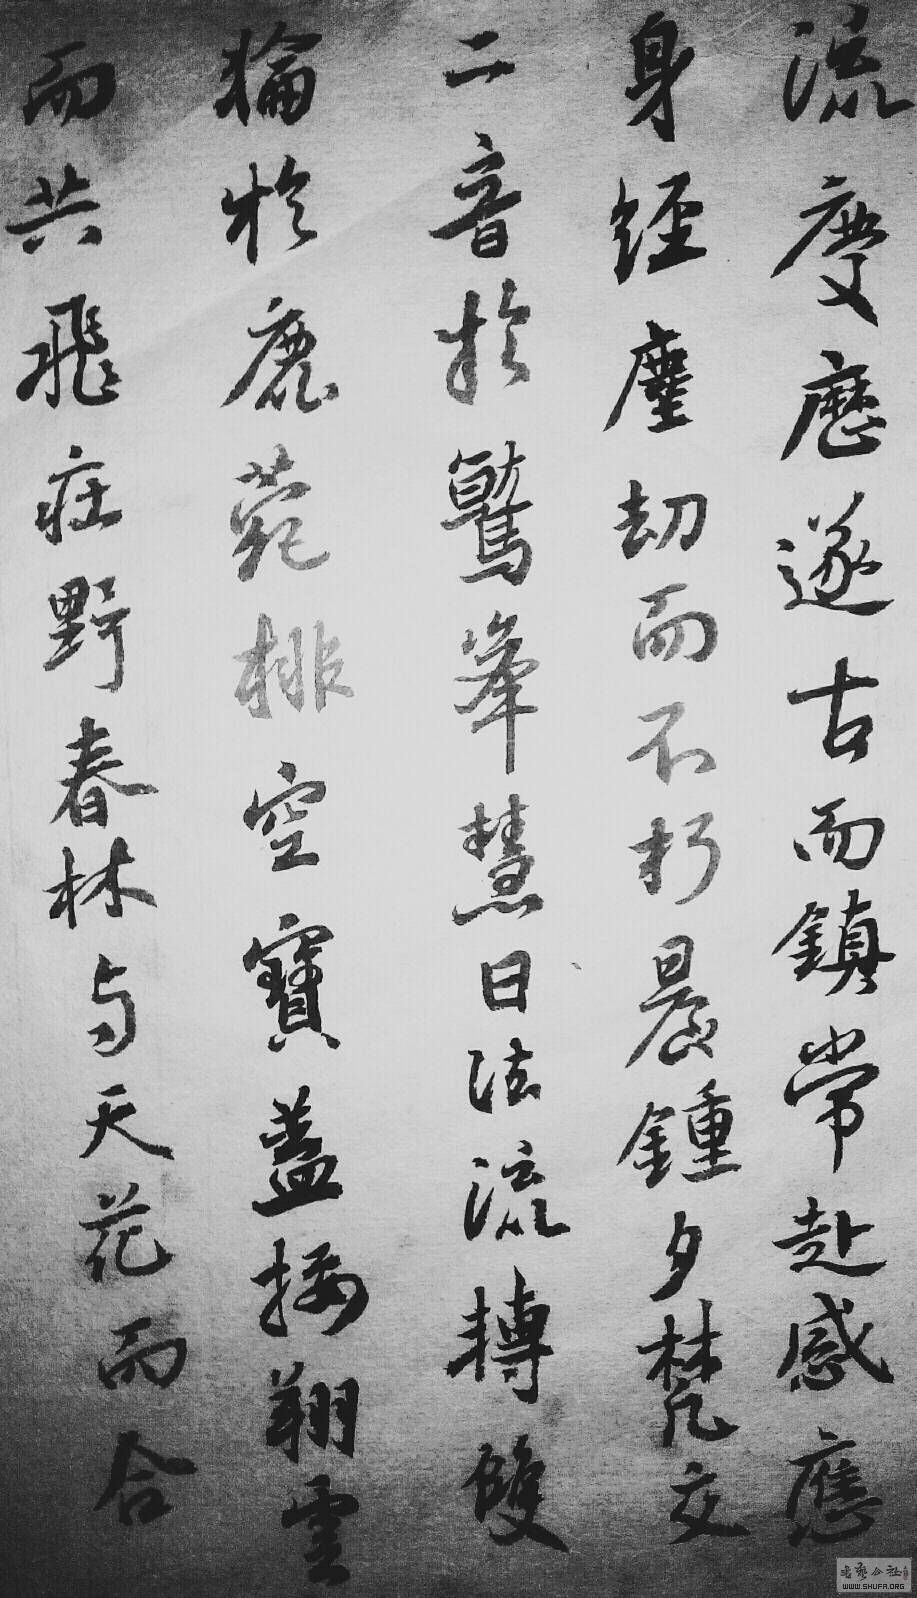 流慶歷遂古而鎮常赴感應
身經塵劫而不朽晨鍾夕梵交
二音於鷲峯慧日法流轉雙
輪於鹿菀排空寶蓋接翔雲
而共飛庄野春林与天花而合
書藝公社
WWW.SHUFA.ORG